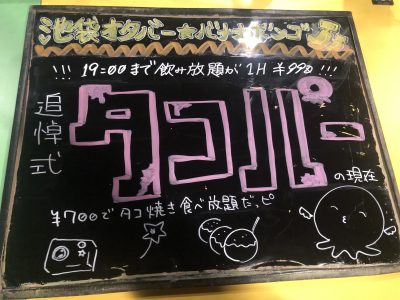 池袋オタバー☆バナナボンゴJr.
!!! 19:00まで飲み放題が1H ¥990 !!!
追悼式
タコパー
の現在
¥700でタコ焼き食べ放題だッピ